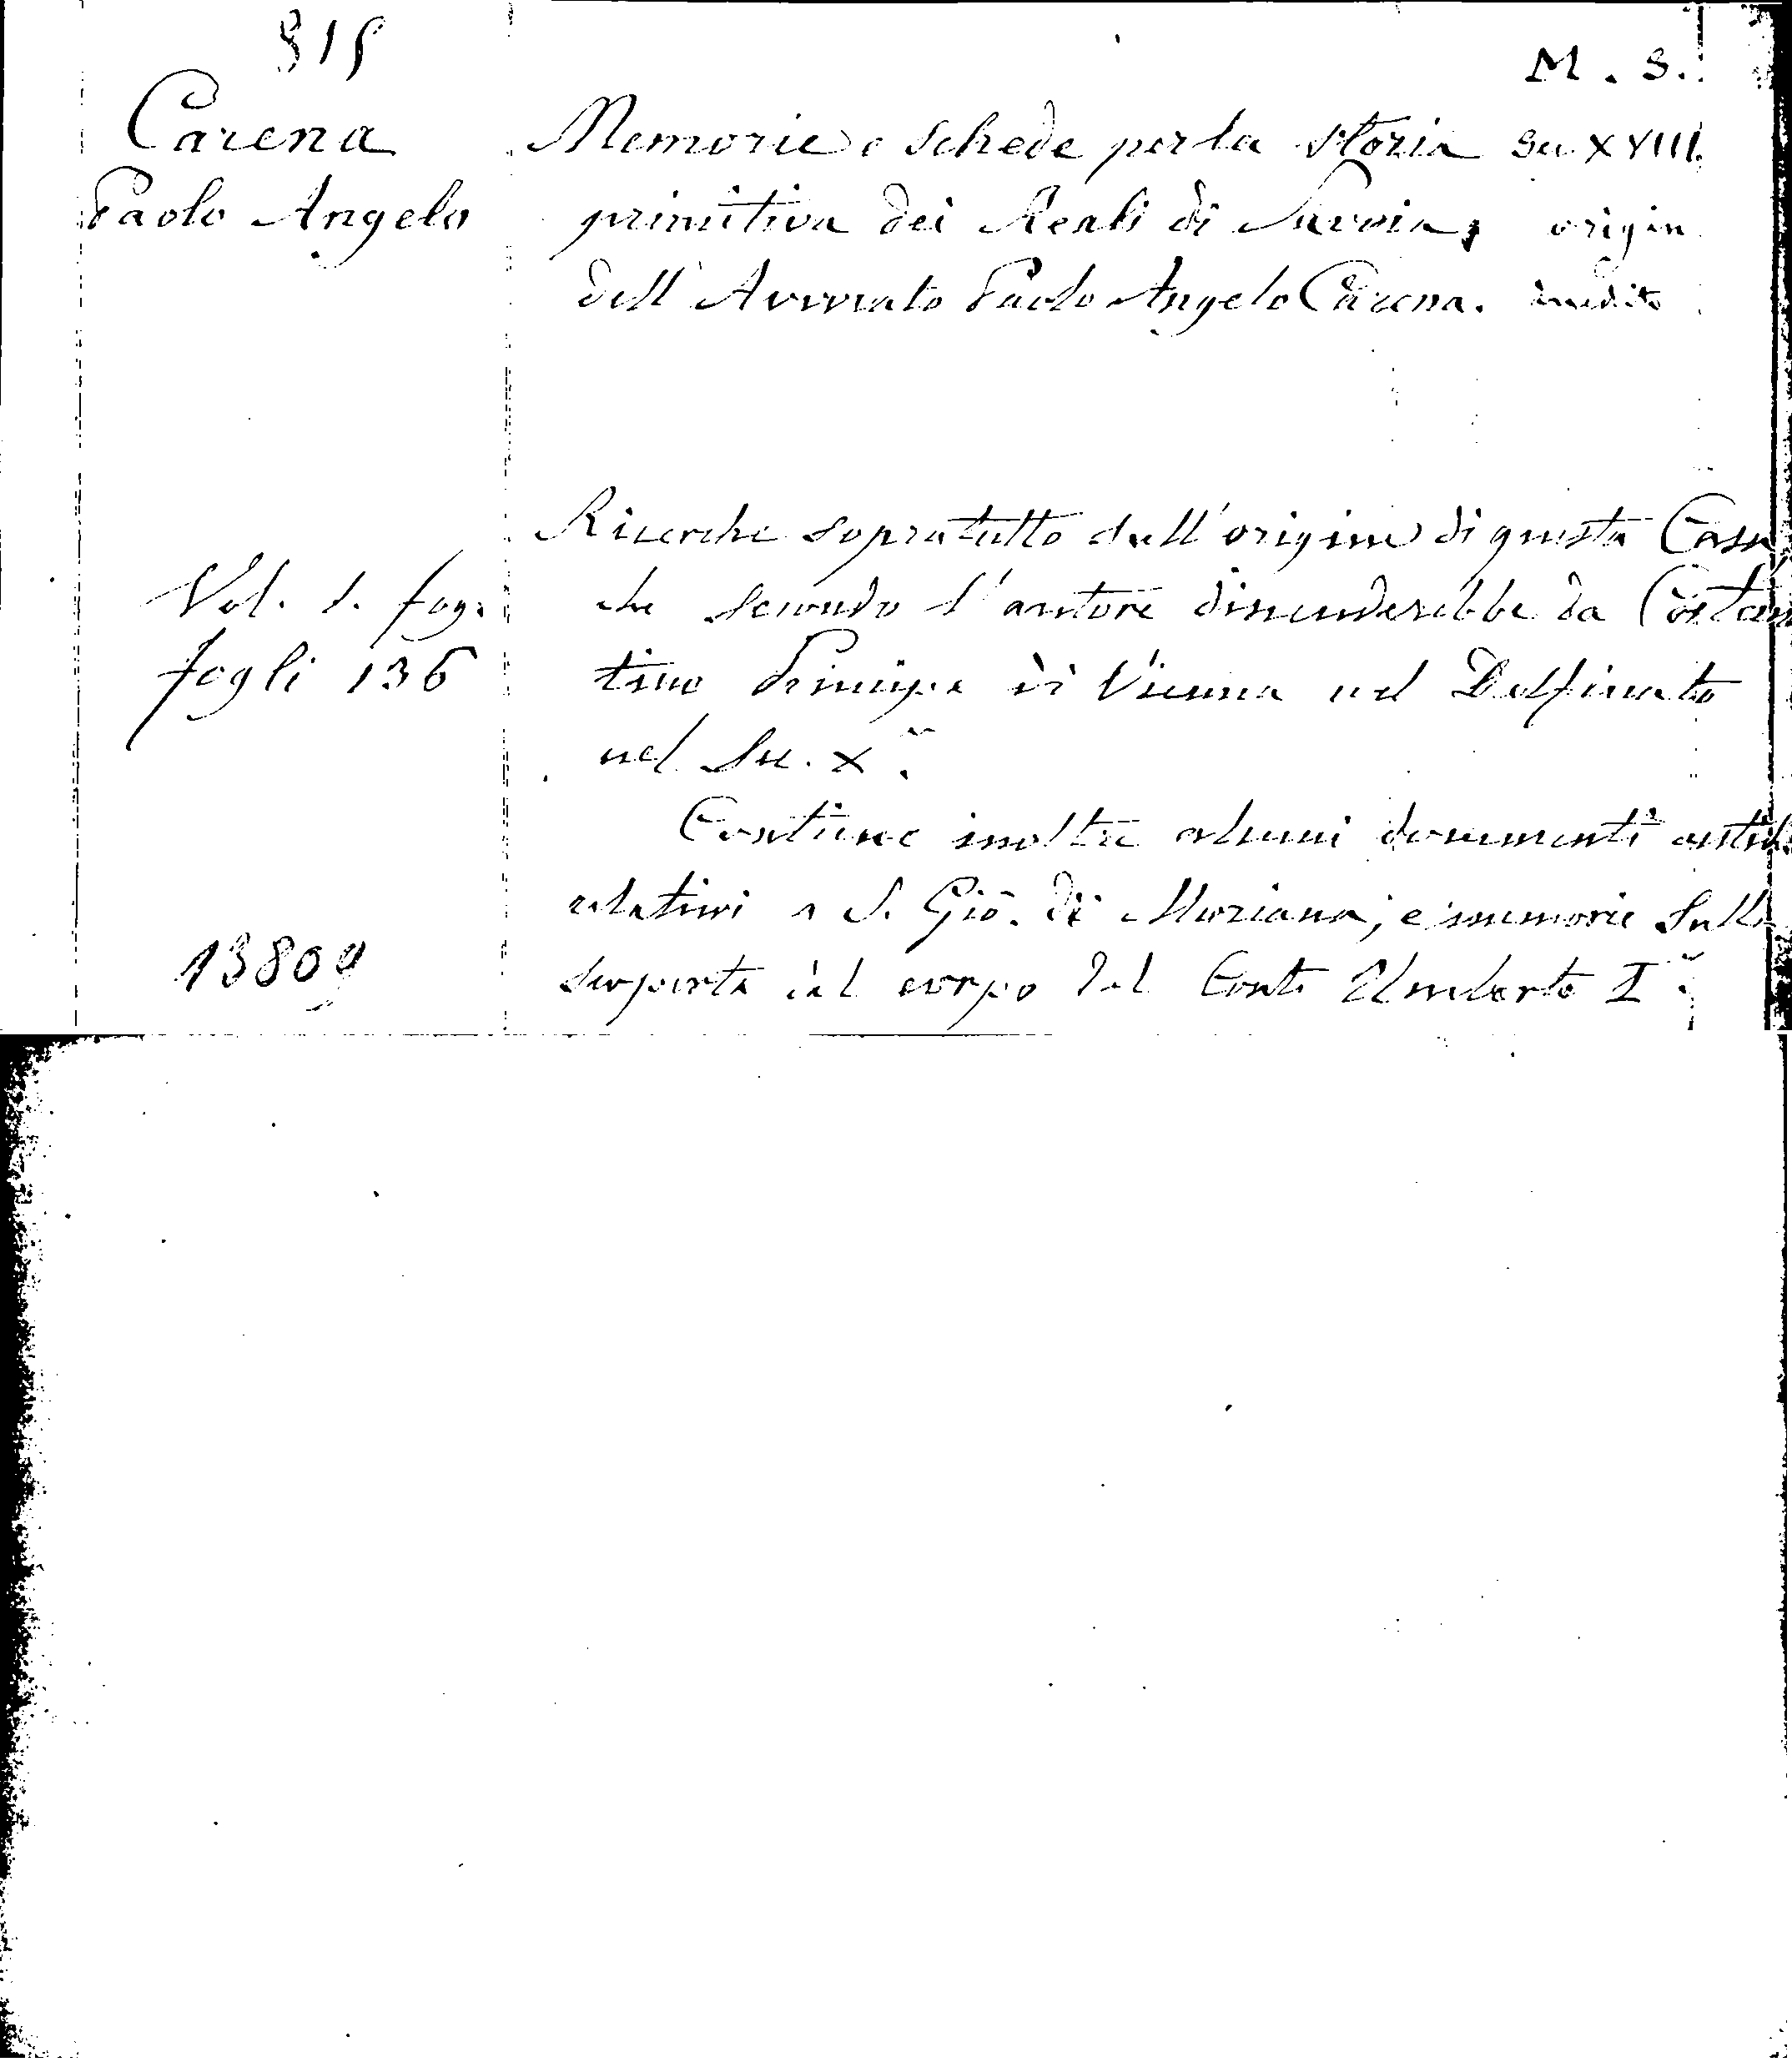 315
M. S.
Carena
Paolo Angelo
Memorie e schede per la storia
primitiva dei Reali di Savoia,
dell'Avvocato Paolo Angelo Carena.
Sec XVIII
origin
inedito
Ricerche sopratutto dell'origine di questa Casa
che secondo l'autore discenderebbe da Costan
tino Principe di Vienna nel Delfinato
nel Sec. X°.
Vol. 1. fog.
fogli 136
Contiene inoltre alcuni documenti antichi
relativi a S. Gio. di Moriana, e memorie sulla
scoperta del corpo del Conte Umberto I°.
13809